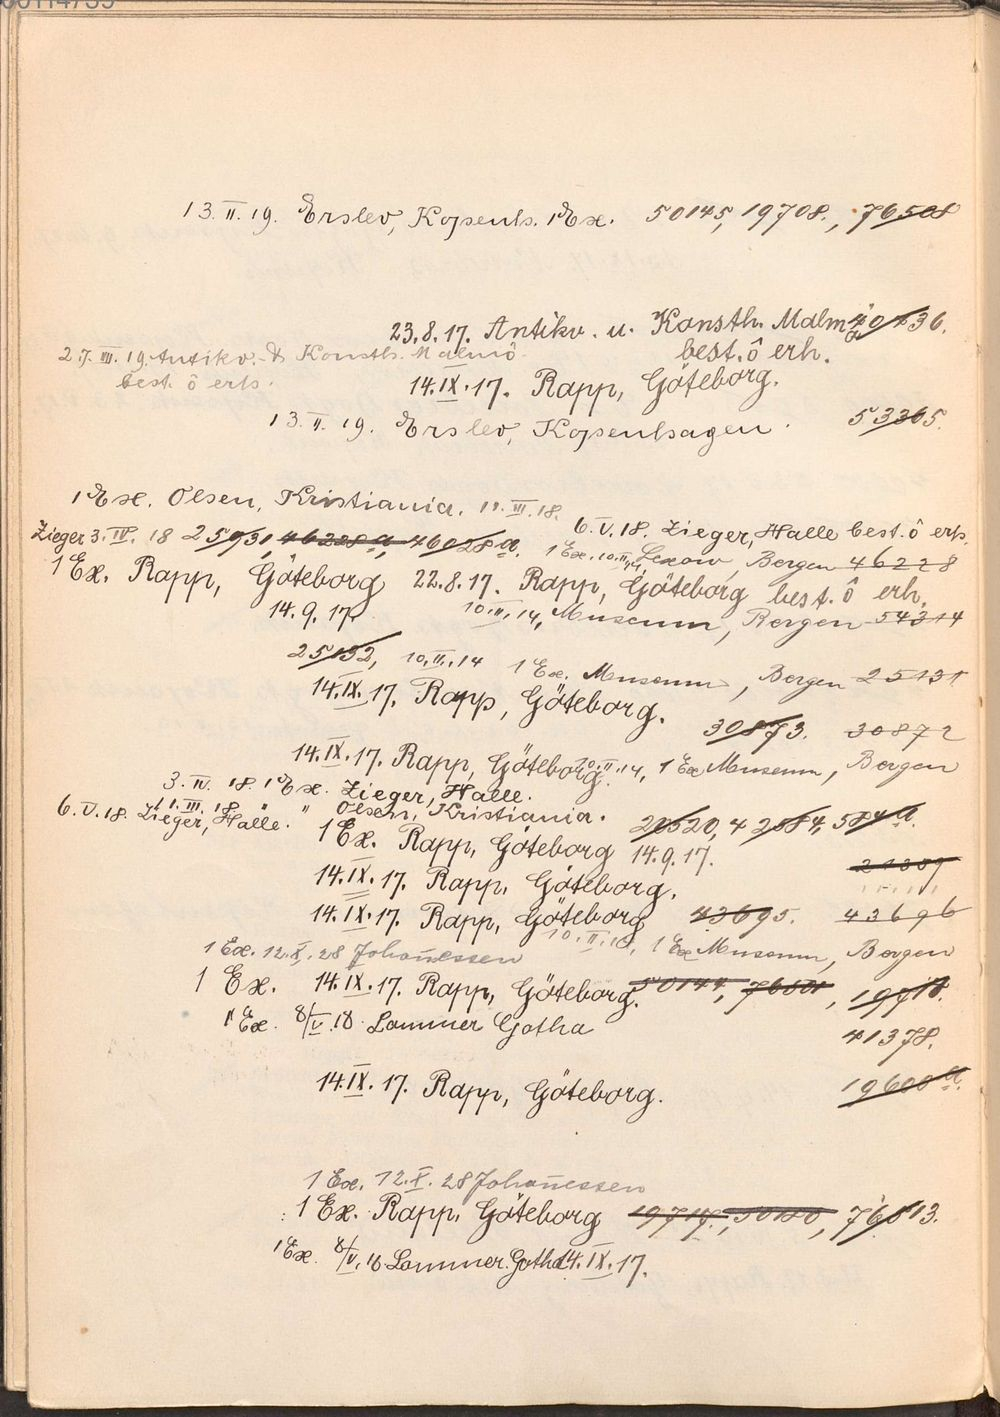 13. II. 19. Erslev, Kopenh. 1 Ex. 50145, 19708., 76508
23.8.17. Antikv. u. Konsth. Malmö 40436.
best. ô erh.
27. III. 19. Antikv. & Konsth. Malmö.
best. ô erh.
14. IX. 17. Rapp, Göteborg.
13. II. 19. Erslev, Kopenhagen. 53365.
1 Ex. Olsen, Kristiania. 11. III. 18.
6. V. 18. Zieger, Halle best. ô erh.
Zieger 3. IV. 18 25931, 46228a, 46028a.
1 Ex. 10. II. 14, Lexow, Bergen 46228
1 Ex. Rapp, Göteborg 22.8.17. Rapp, Göteborg best. ô erh.
14.9.17. 10. II. 14, Museum, Bergen 54314
25132, 10. II. 14 1 Ex. Museum, Bergen 25131
14. IX. 17. Rapp, Göteborg.
30873. 30872
14. IX. 17. Rapp, Göteborg. 10. II. 14, 1 Ex Museum, Bergen
3. IV. 18. 1 Ex. Zieger, Halle.
11. III. 18. " " Olsen, Kristiania.
6. V. 18. Zieger, Halle.
1 Ex. Rapp, Göteborg 14.9.17. 20520, 42584, 584a.
14. IX. 17. Rapp, Göteborg. 21309
14. IX. 17. Rapp, Göteborg 43695. 43696
10. II. 14, 1 Ex Museum, Bergen
1 Ex. 12. X. 28 Johannessen
1 Ex. 14. IX. 17. Rapp, Göteborg. 50144, 76501, 19718.
1 Ex. 8/V. 18 Lammer Gotha
41378.
14. IX. 17. Rapp, Göteborg. 19600a.
1 Ex. 12. X. 28 Johannessen
1 Ex. Rapp, Göteborg 19717., 50120, 76513.
1 Ex. 8/V. 18 Lammer. Gotha 14. IX. 17.